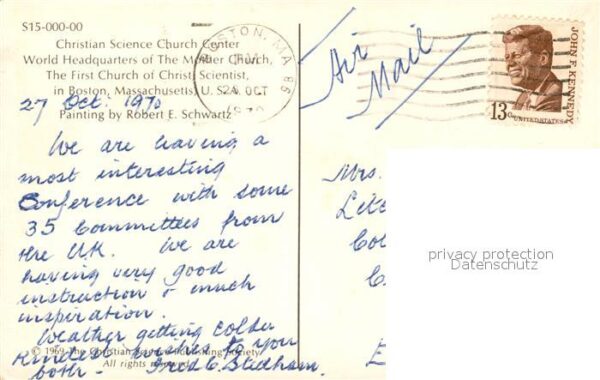 S15-000-00
Christian Science Church Center
World Headquarters of The Mother Church,
The First Church of Christ, Scientist,
in Boston, Massachusetts, U.S.A.
Painting by Robert E. Schwartz
27 Oct. 1970
We are having a
most interesting
Conference with some
35 Committees from
the U.K. We are
having very good
instruction & much
inspiration.
Weather getting colder
Kindest wishes to you
both -
© 1969 The Christian Science Publishing Society
All rights reserved
BOSTON, MA
PM
OCT
1970
Air
Mail
JOHN F. KENNEDY
13c UNITED STATES
Mrs.
privacy protection
Datenschutz